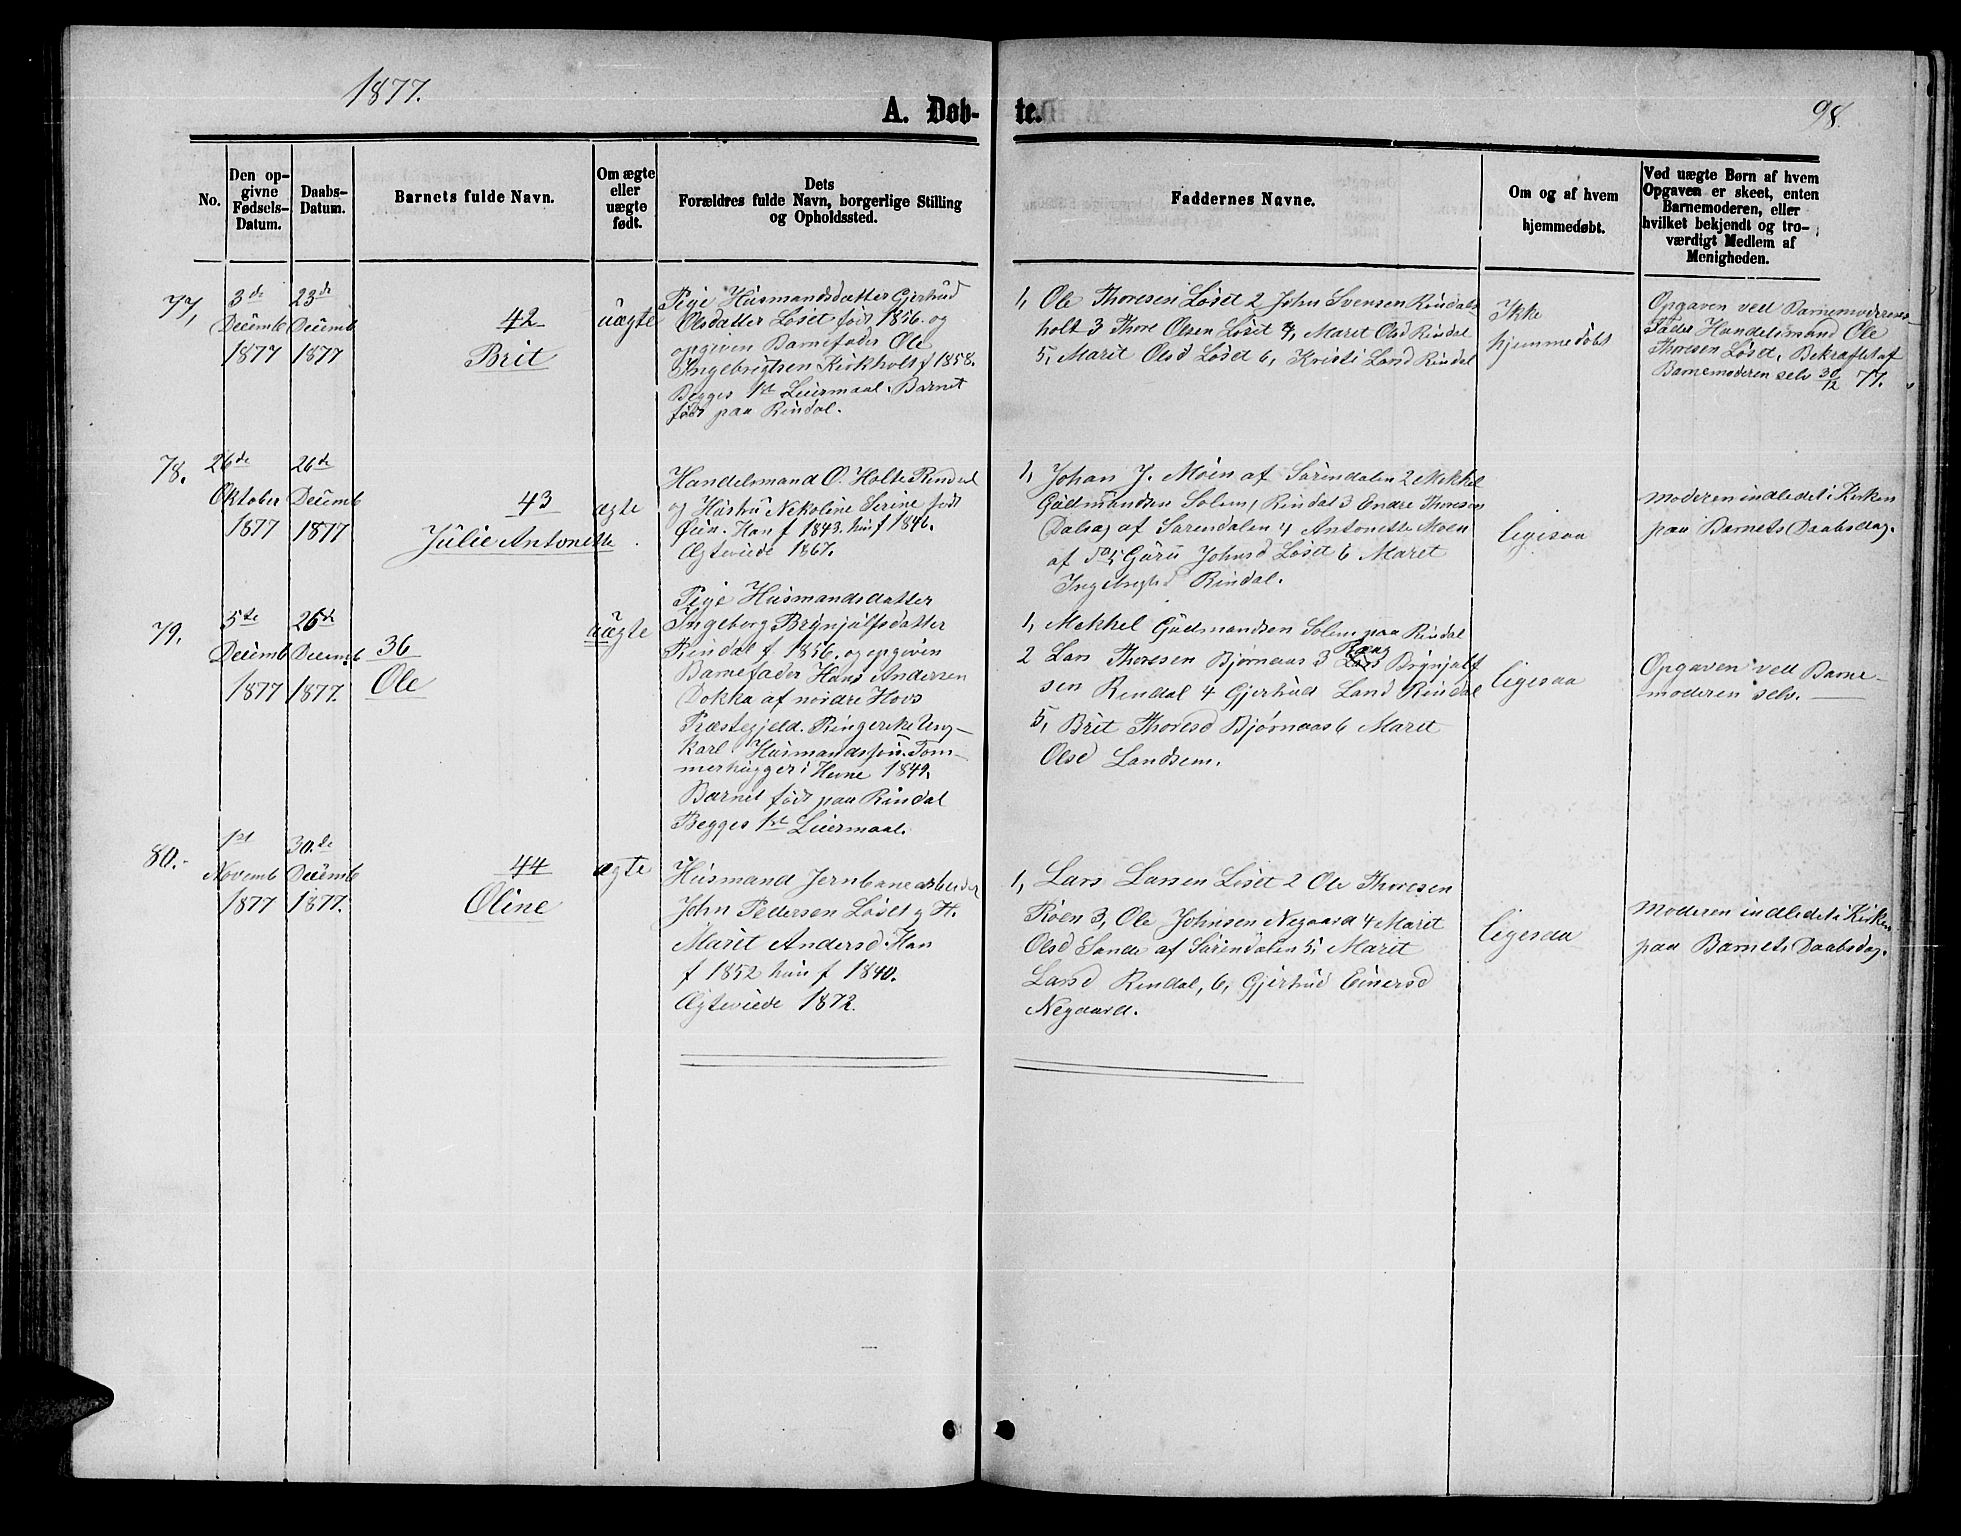 1877.
A. Døb-
te.
98.
No.
Den op-
givne
Fødsels-
Datum.
Daabs-
Datum.
Barnets fulde Navn.
Om ægte
eller
uægte
født.
Dets
Forældres fulde Navn, borgerlige Stilling
og Opholdssted.
Faddernes Navne.
Om og af hvem
hjemmedøbt.
Ved uægte Børn af hvem
Opgaven er skeet, enten
Barnemoderen, eller
hvilket bekjendt og tro-
værdigt Medlem af
Menigheden.
77,
3de
Decemb
1877
23de
Decemb
1877
42
Brit
uægte
Pige Husmandsdatter Gjertrud
Olsdatter Løset født 1856. og
opgiven Barnefader Ole
Ingebrigtsen Kirkholt f 1858.
Begges 1st Leiermaal. Barnet
født paa Rindal.
1, Ole Thoresen Løset 2 John Svensen Rindals
holt 3 Thore Olsen Løset 4, Maret Olsd Rindal
5, Marit Olsd Løset 6, Kristi Larsd Rindal
Ikke
hjemmedøbt
Opgaven ved Barnemoderens
Fader Handelsmand Ole
Thoresen Løset, Bekræftet af
Barnemoderen selv 30/12 77.
78.
26de
Oktober
1877
26de
Decemb
1877
43
Julie Antonette
ægte
Handelsmand O. Holte Rindal
og Hustru Nekoline Serine født
Øien. Han f 1843. hun f 1846.
Ægteviede 1867.
1, Johan J. Moen af Surendalen 2 Mekkel
Gudmundsen Solem, Rindal 3 Endre Thoresen
Dalsag af Surendalen 4 Antonette Moen
af do 5, Guru Johnsd Løset 6 Maret
Ingebrigtsd Rindal.
ligesaa
Moderen indledet i Kirken
paa Barnets Daabsdag.
79.
5te
Decemb
1877
26de
Decemb
1877.
36
Ole
uægte
Pige Husmandsdatter
Ingeborg Brynjulfsdatter
Rindal f 1856. og opgiven
Barnefader Hans Andersen
Dokka af nordre Hovs
Præstegjeld. Ringerike Ung-
karl Husmandssøn. Tøm-
merhugger i Hevne 1849.
Barnet født paa Rindal
Begges 1st Leiermaal.
1, Mekkel Gudmundsen Solem paa Rindal
2 Lars Thoresen Bjørnaas 3 Brynjulf
sen Rindal 4 Gjertrud Larsd Rindal
5, Brit Thoresd Bjørnaas 6 Maret
Olsd Landsem.
ligesaa
Opgaven ved Barne-
moderen selv.
80.
1st
Novemb
1877
30.de
Decemb
1877.
44
Oline
ægte
Husmand Jernbanearbeider
John Pedersen Løset og H.
Maret Andersd. Han
f 1852 hun f 1840.
Ægteviede 1872.
1, Lars Larsen Løset 2 Ole Thoresen
Røen 3, Ole Johnsen Negaard 4 Marit
Olsd Sande af Surendalen 5, Maret
Larsd Rindal, 6, Gjertrud Einersd
Negaard.
ligesaa
Moderen indledet i Kirken
paa Barnets Daabsdag.